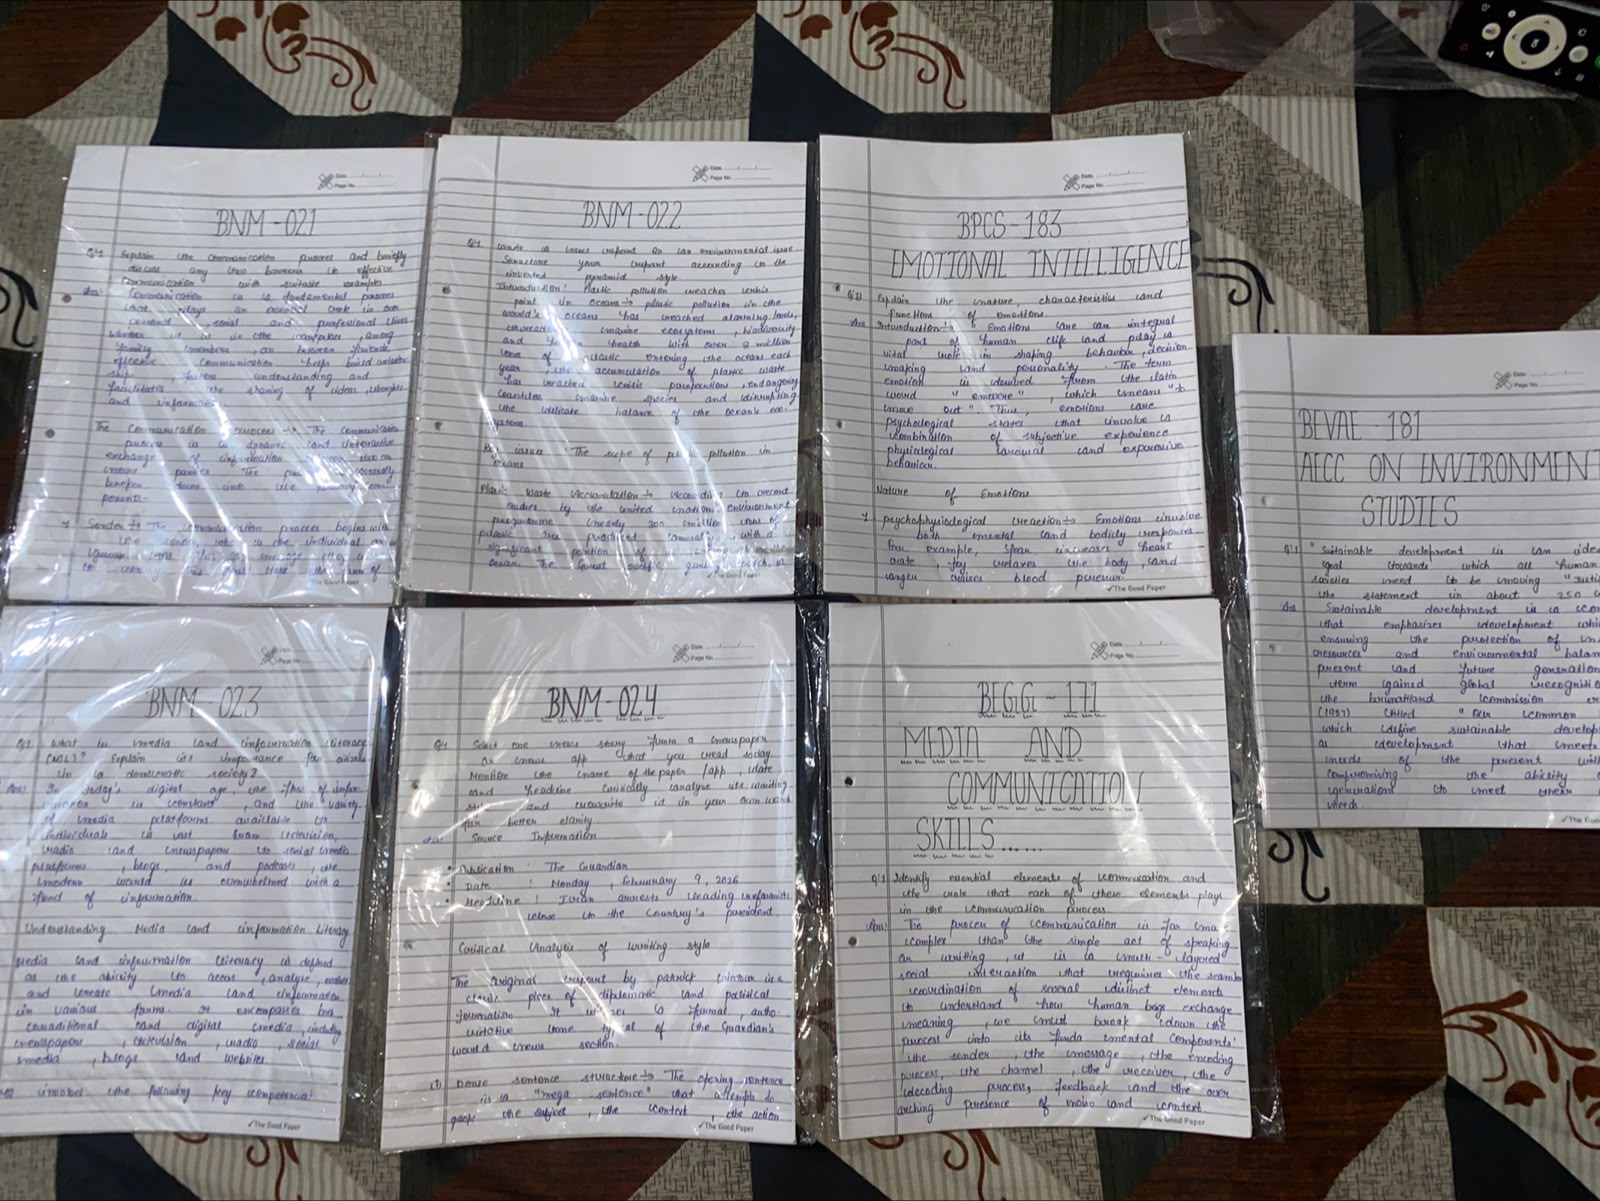 Date
Page No.
BNM-021
Q1 Explain the communication process and briefly
discuss any two barriers to effective
communication with suitable examples
Ans: Communication is a fundamental process
that plays an essential role in our
personal, social and professional lives
whether it is in the workplace, among
family members, or between friends
effective communication helps build relation
ship, foster understanding and
facilitates the sharing of ideas, thoughts
and information.
The communication process → The communication
process is a dynamic and interactive
exchange of information between two or
more parties. The process generally
broken down into the following com-
ponents-
1 Sender → The communication process begins with
the sender, who is the individual or
The Good Paper
Date
Page No.
BNM-022
Q1 Write a news report on an environmental issue
Structure your report according to the
inverted pyramid style
Introduction: Plastic pollution reaches crisis
point in oceans → plastic pollution in the
world's oceans has reached alarming levels,
threatening marine ecosystems, biodiversity
and human health with over 8 million
tons of plastic entering the oceans each
year, the accumulation of plastic waste
has reached crisis proportions, endangering
countless marine species and disrupting
the delicate balance of the ocean's eco-
system.
Key issues: The scope of plastic pollution in
oceans
Plastic Waste Accumulation → According to recent
studies by the united nations environment
programme nearly 300 million tons of
plastic are produced annually, with a
significant portion of
ocean. The Great pacific garbage patch, a
The Good Paper
Date
Page No.
BPCS-183
EMOTIONAL INTELLIGENCE
Q1) Explain the nature, characteristics and
function of emotions.
Ans Introduction → Emotions are an integral
part of human life and play a
vital role in shaping behaviour, decision
making and personality. The term
emotion is derived from the latin
word "emovere", which means "to
move out" Thus, emotions are
psychological states that involve a
combination of subjective experience
physiological arousal and expressive
behaviour.
Nature of Emotions
1 psychophysiological reaction → Emotions involve
both mental and bodily responses
For example, fear increases heart
rate, joy relaxes the body, and
anger raises blood pressure.
The Good Paper
Date
Page No.
BEVAE - 181
AECC ON ENVIRONMENT
STUDIES
Q1 "Sustainable development is an idea
goal towards which all human
societies need to be moving "Justi
the statement in about 250 w
Ans Sustainable development is a con
that emphasizes development whi
ensuring the protection of
resources and environmental balan
present and future generation
term gained global recogniti
the brundtland commission
(1987) titled "Our common
which define sustainable develop
as development that meets
needs of the present with
compromising the ability
generations to meet their
needs.
The Good
Date
Page No.
BNM-023
Q1 What is media and information literacy
(MIL)? Explain its importance for citizens
in a democratic society?
Ans: In today's digital age, the flow of infor
mation is constant, and the variety
of media platforms available to
individuals is vast from television,
radio and newspapers to social media
platforms, blogs, and podcasts, the
modern world is overwhelmed with a
flood of information.
Understanding Media and information Literacy
Media and information literacy is defined
as the ability to access, analyse, evaluate
and create media and information
in various forms. It encompasses both
traditional and digital media, including
newspapers, television, radio, social
media, blogs and websites.
involves the following key competencies:
The Good Paper
Date
Page No.
BNM-024
Q1 Select one news story from a newspaper
or news app that you read today.
Mention the name of the paper / app, date
and headline Critically analyse its writing
style and rewrite it in your own words
for better clarity.
Ans: Source Information
• Publication : The Guardian
• Date : Monday, february 9, 2026
• Headline : Iran arrests leading reformists
close to the country's president.
Critical Analysis of writing style
The Original report by patrick wintour is a
classic piece of diplomatic and political
journalism. It utilizes a formal, autho-
ritative tone typical of the Guardian's
world news section.
(1) Dense sentence structure → The opening sentence
is a "mega sentence" that attempts to
pack the subject, the context, the action
The Good Paper
Date
Page No.
BEGG-171
MEDIA AND
COMMUNICATION
SKILLS......
Q1 Identify essential elements of communication and
the role that each of these elements plays
in the communication process
Ans: The process of communication is far more
complex than the simple act of speaking
or writting, it is a multi-layered
social interaction that requires the seamless
coordination of several distinct elements
to understand how human beings exchange
meaning, we must break down the
process into its funda emental components:
the sender, the message, the encoding
process, the channel, the receiver, the
decoding process, feedback and the over
arching presence of noise and context.
The Good Paper